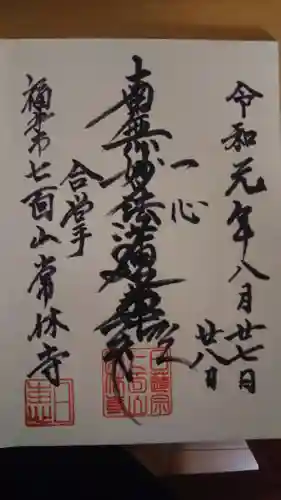 令和元年八月廿七日
廿八日
一心
南無妙法蓮華経
合掌
七面山常林寺